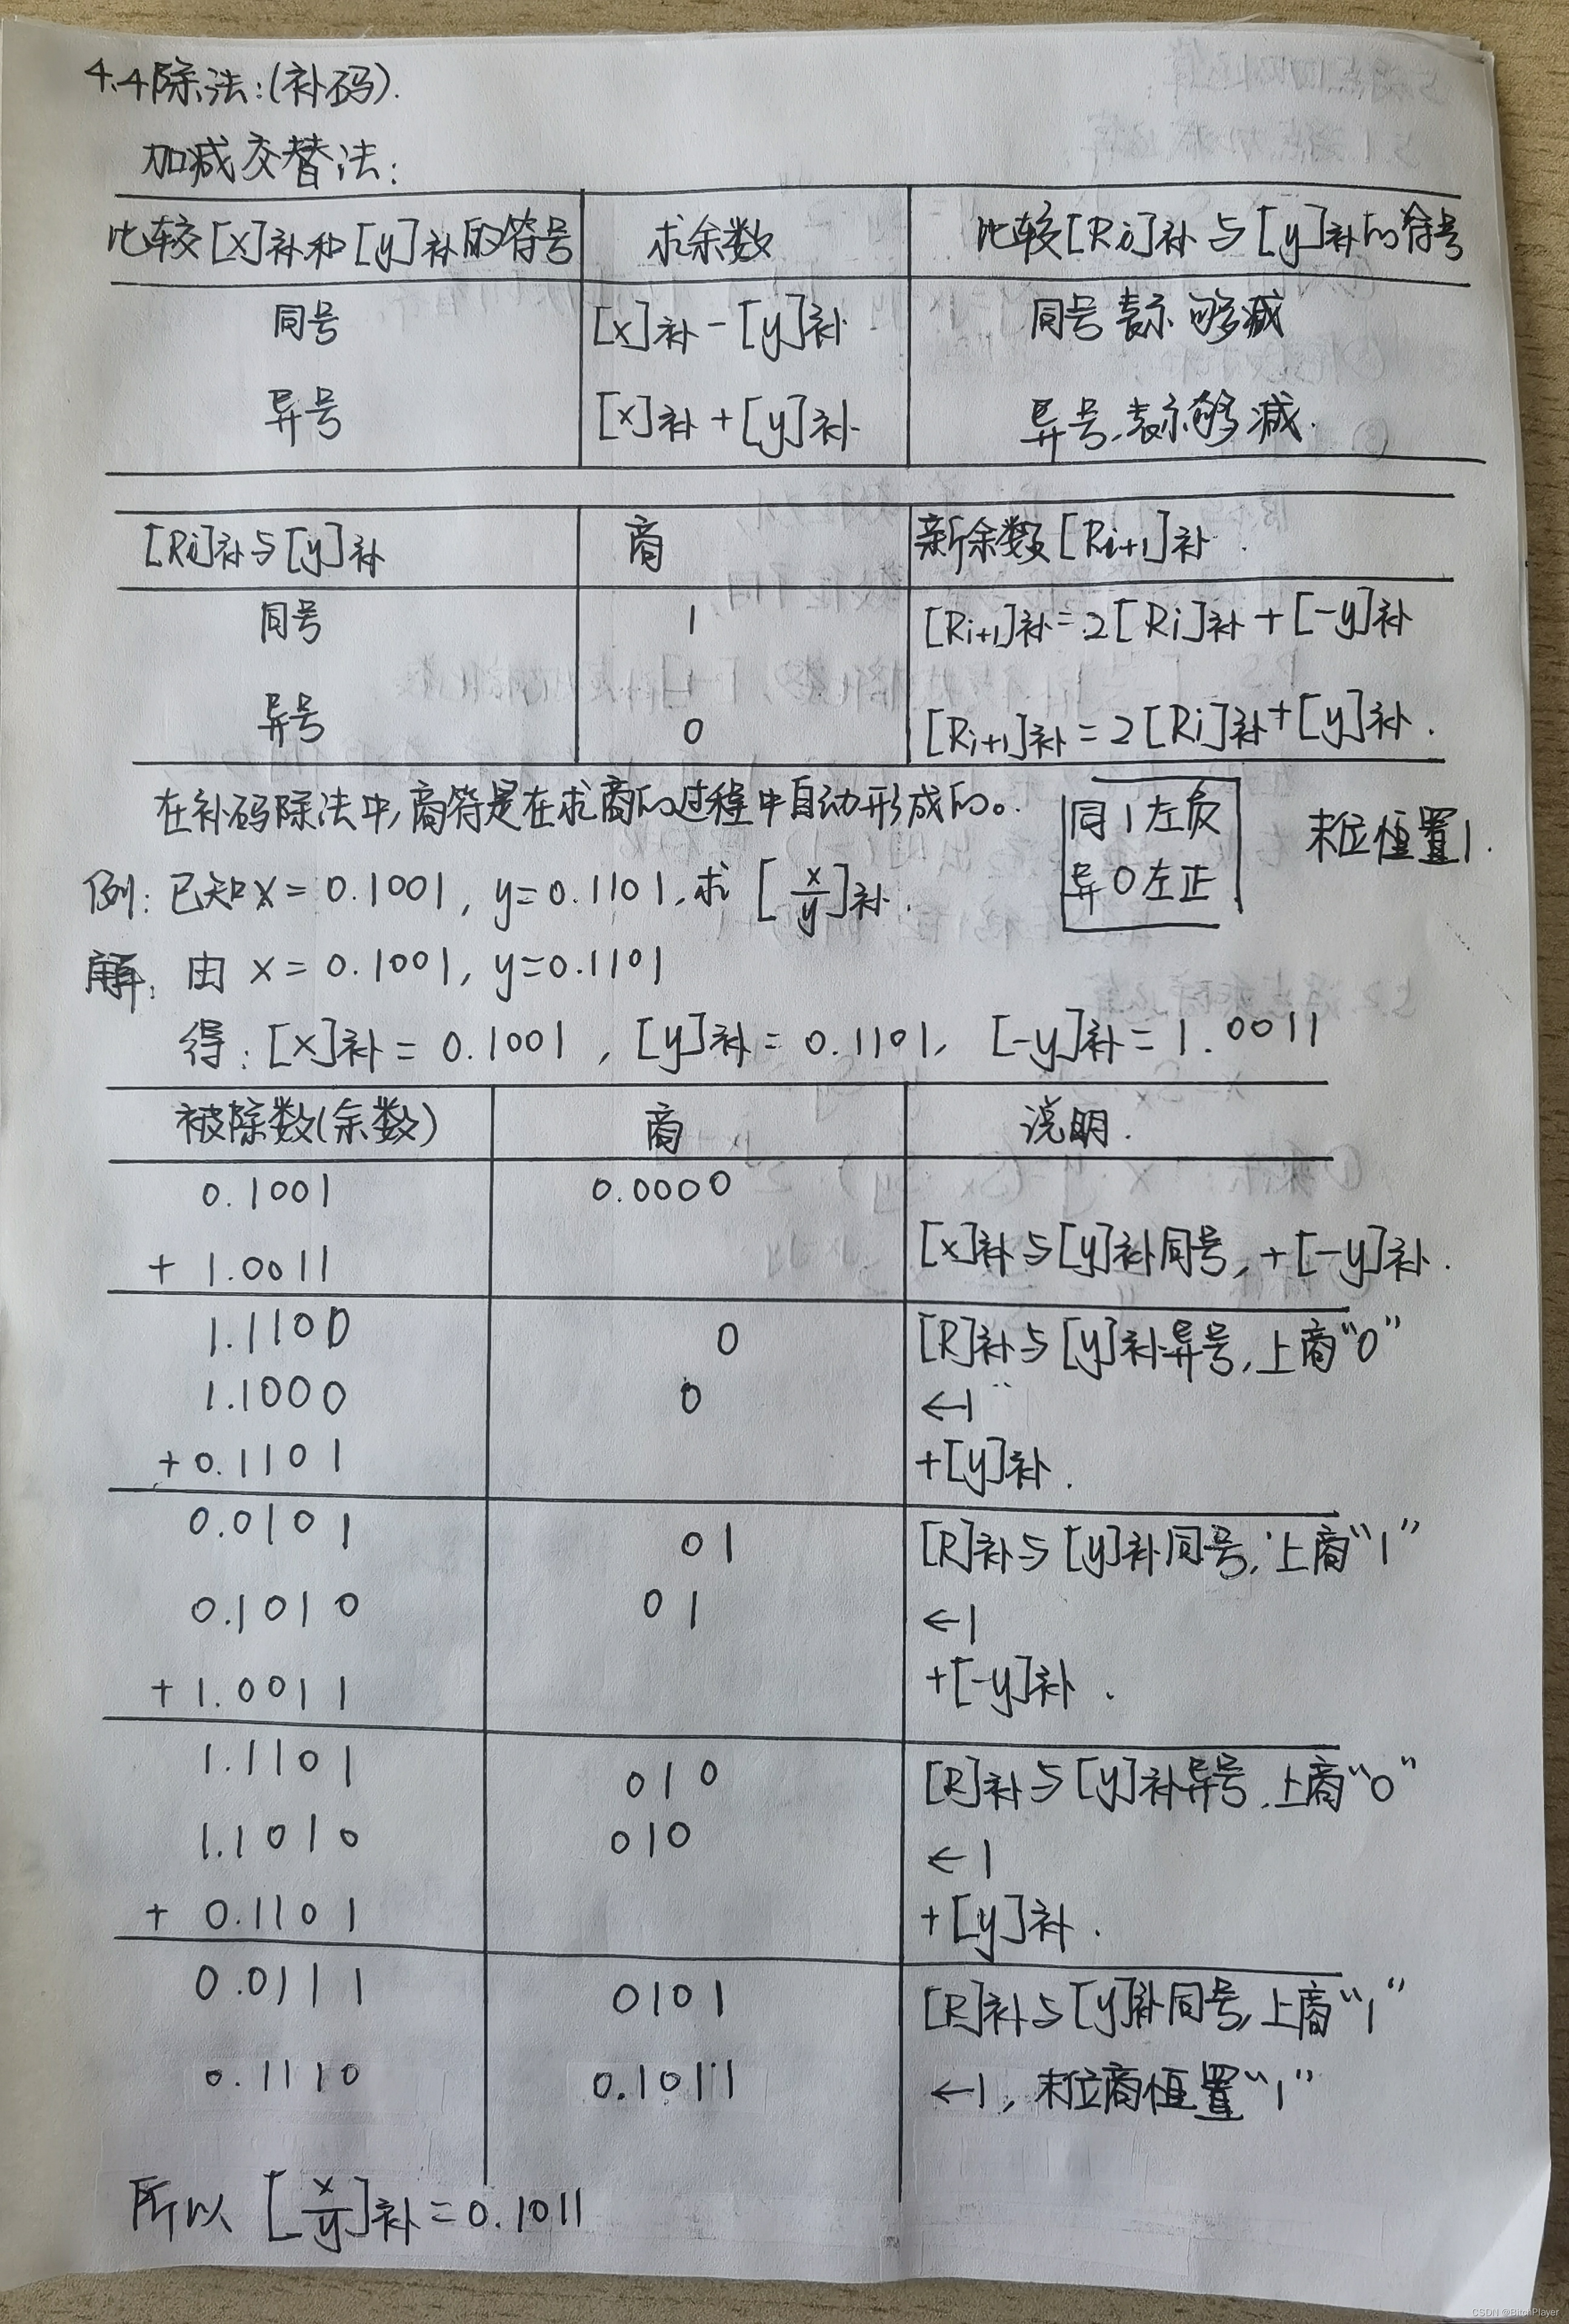 4.4除法:(补码).
加减交替法:
比较[x]补和[y]补的符号 求余数 比较[Ri]补与[y]补的符号
同号 [x]补-[y]补 同号表示够减
异号 [x]补+[y]补 异号,表示够减.
[Ri]补与[y]补 商 新余数[Ri+1]补.
同号 1 [Ri+1]补=2[Ri]补+[-y]补
异号 0 [Ri+1]补=2[Ri]补+[y]补.
在补码除法中,商符是在求商的过程中自动形成的。
同1左负
异0左正
末位恒置1.
例:已知x=0.1001,y=0.1101,求[x/y]补.
解:由x=0.1001,y=0.1101
得:[x]补=0.1001,[y]补=0.1101,[-y]补=1.0011
被除数(余数) 商 说明.
0.1001 0.0000
+1.0011 [x]补与[y]补同号,+[-y]补.
1.1100 0 [R]补与[y]补异号,上商"0"
1.1000 0 ←1
+0.1101 +[y]补.
0.0101 01 [R]补与[y]补同号,上商"1"
0.1010 01 ←1
+1.0011 +[-y]补.
1.1101 010 [R]补与[y]补异号,上商"0"
1.1010 010 ←1
+0.1101 +[y]补.
0.0111 0101 [R]补与[y]补同号,上商"1"
0.1110 0.1011 ←1,末位商恒置"1"
所以[x/y]补=0.1011
CSDN @BitchPlayer